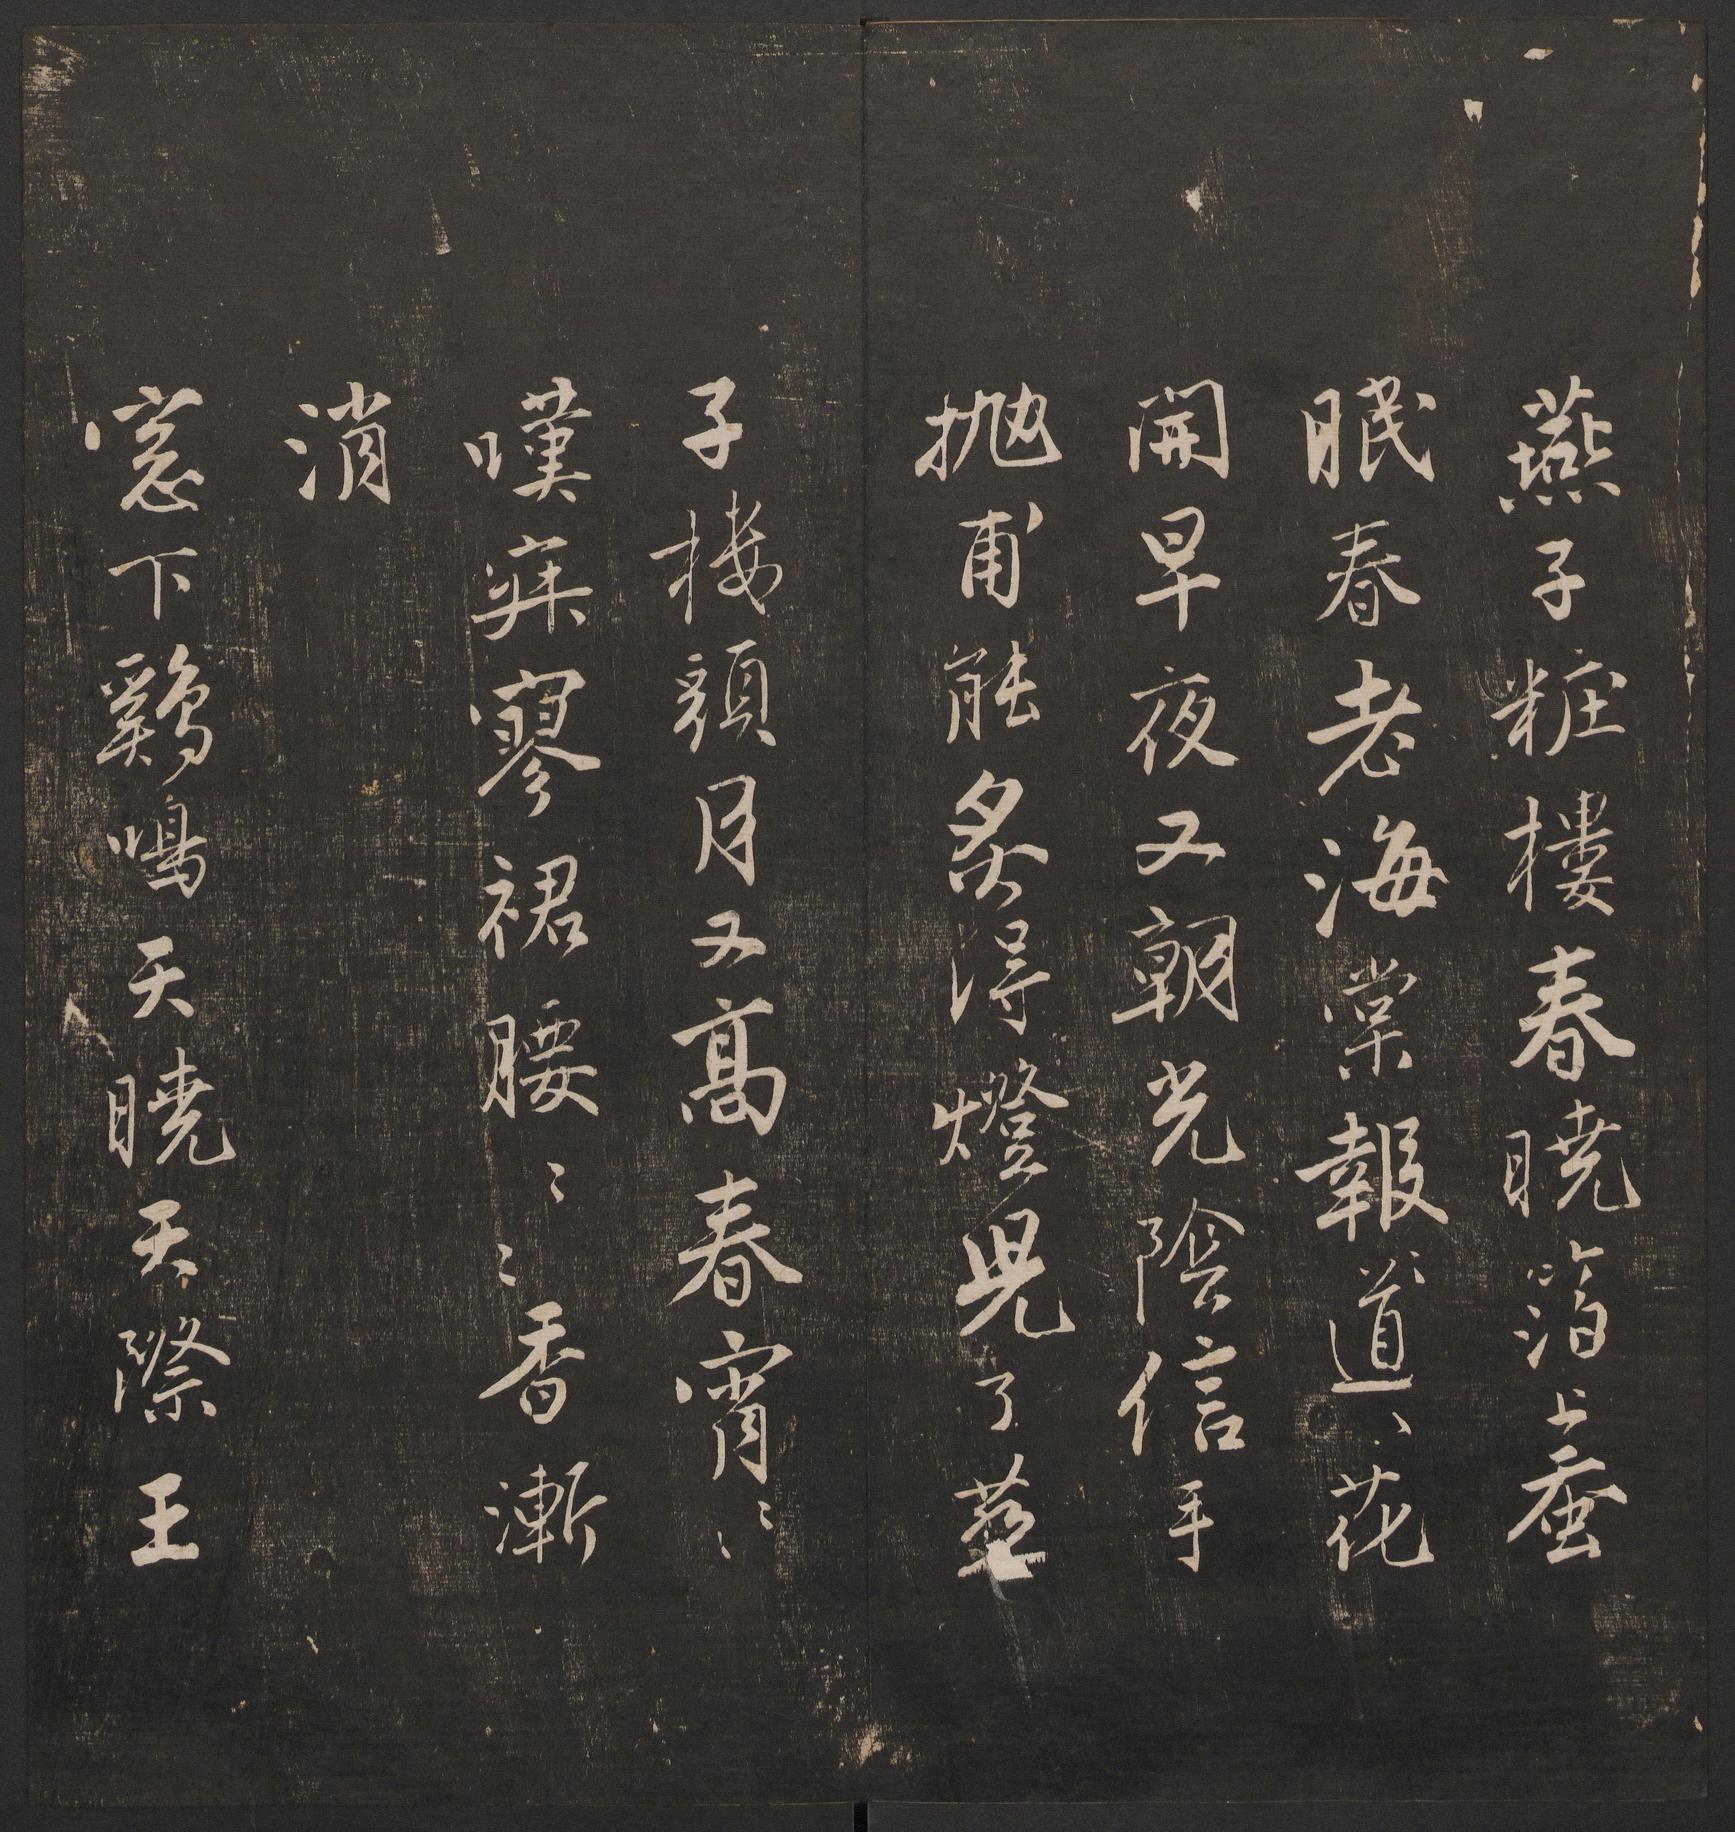 燕子粧樓春曉箔上蚕
眠春老海棠報道〻花
開早夜又朝光陰信手
抛甫能炙得燈兒了燕
子樓頭月又高春宵〻〻
嘆寂寥裙腰〻〻香漸
消
窓下鷄鳴天曉天際王